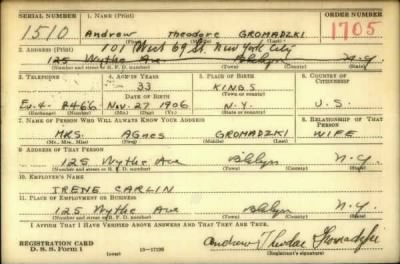 SERIAL NUMBER 1. NAME (Print) ORDER NUMBER
1510 Andrew Theodore GROMADZKI 1705
(First) (Middle) (Last)
2. ADDRESS (Print)
101 West 69 St. New York City
125 Wythe Ave. Bklyn N.Y.
(Number and street or R. F. D. number) (Town) (County) (State)
3. TELEPHONE 4. AGE IN YEARS 5. PLACE OF BIRTH 6. COUNTRY OF CITIZENSHIP
33 KINGS
DATE OF BIRTH (Town or county)
Ev. 4- 8466 Nov. 27 1906 N.Y. U.S.
(Exchange) (Number) (Mo.) (Day) (Yr.) (State or country)
7. NAME OF PERSON WHO WILL ALWAYS KNOW YOUR ADDRESS 8. RELATIONSHIP OF THAT PERSON
MRS. AGNES GROMADZKI WIFE
(Mr., Mrs., Miss) (First) (Middle) (Last)
9. ADDRESS OF THAT PERSON
125 Wythe Ave Bklyn N.Y.
(Number and street or R. F. D. number) (Town) (County) (State)
10. EMPLOYER'S NAME
IRENE CARLIN
11. PLACE OF EMPLOYMENT OR BUSINESS
125 Wythe Ave Bklyn N.Y.
(Number and street or R. F. D. number) (Town) (County) (State)
I AFFIRM THAT I HAVE VERIFIED ABOVE ANSWERS AND THAT THEY ARE TRUE.
REGISTRATION CARD
D. S. S. Form 1 (over) Andrew Theodore Gromadzki
(Registrant's signature)